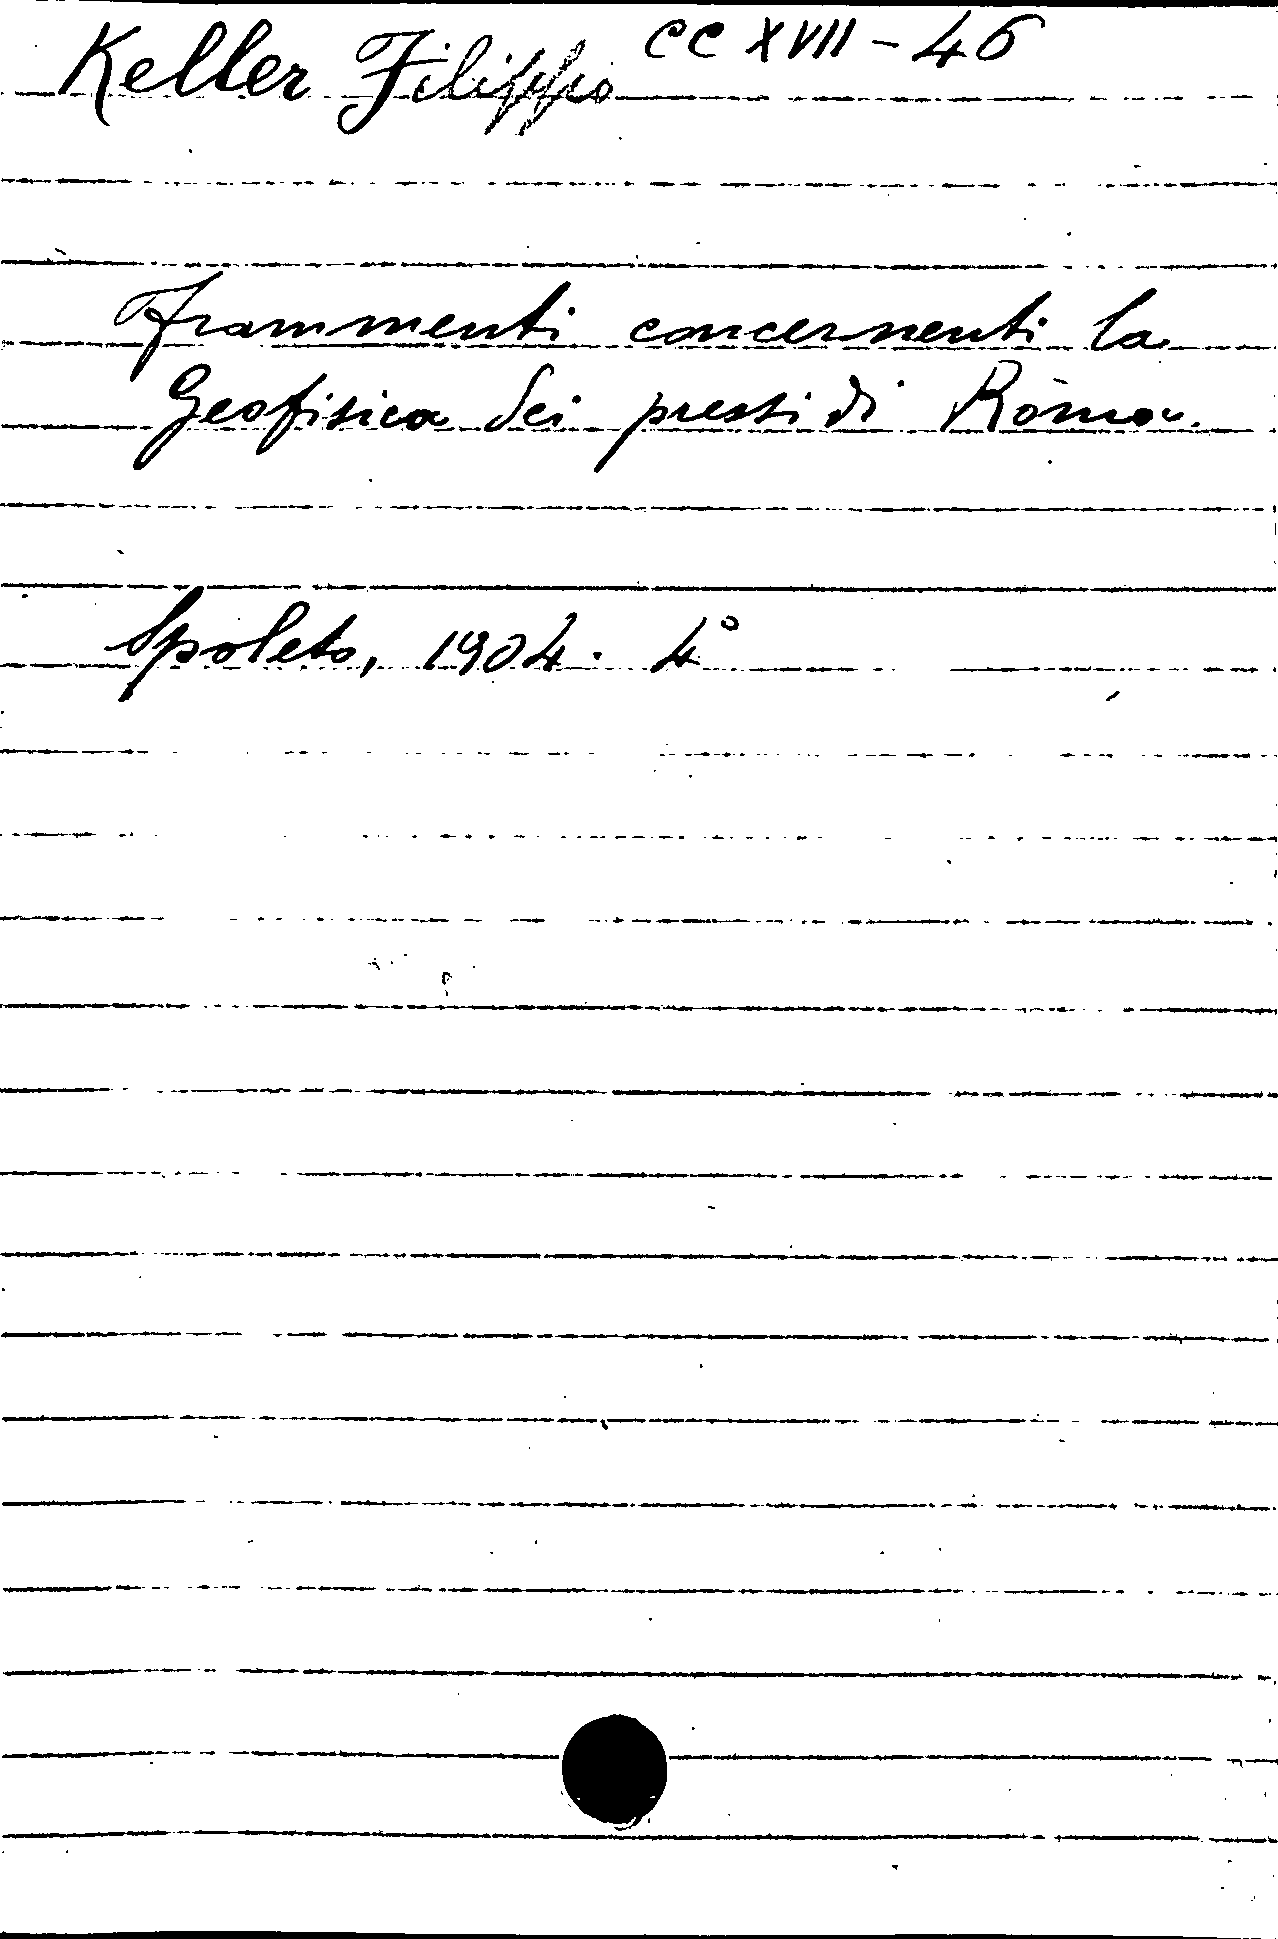 Keller Filippo CCXVII - 46
Frammenti concernenti la
Geofisica dei pressi di Roma.
Spoleto, 1904. 4°